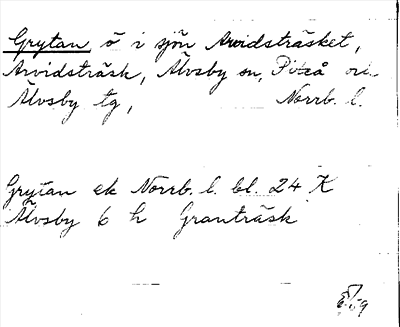 Grytan ö i sjön Arvidsträsket,
Arvidsträsk, Älvsby sn, Piteå
Älvsby tg, Norrb. l.
Grytan ek Norrb. l. bl. 24 K
Älvsby 6 h Granträsk